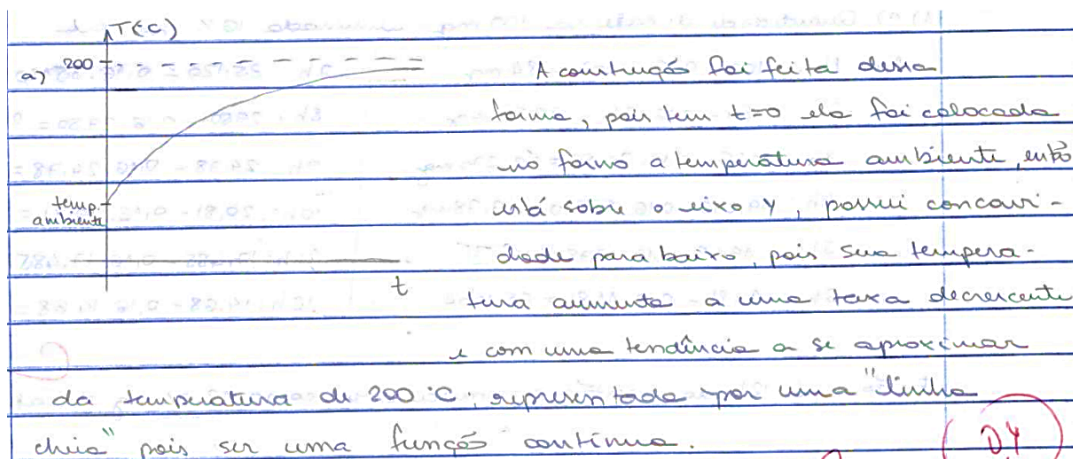 T(°C)
(a) 200
temp.
ambiente
t
A construção foi feita dessa
forma, pois tem t=0 ela foi colocada
no forno a temperatura ambiente, então
está sobre o eixo y, possui concavi-
dade para baixo, pois sua tempera-
tura aumenta a uma taxa decrescente
e com uma tendência a se aproximar
da temperatura de 200°C, representada por uma "linha
cheia" pois ser uma função contínua.
0,4